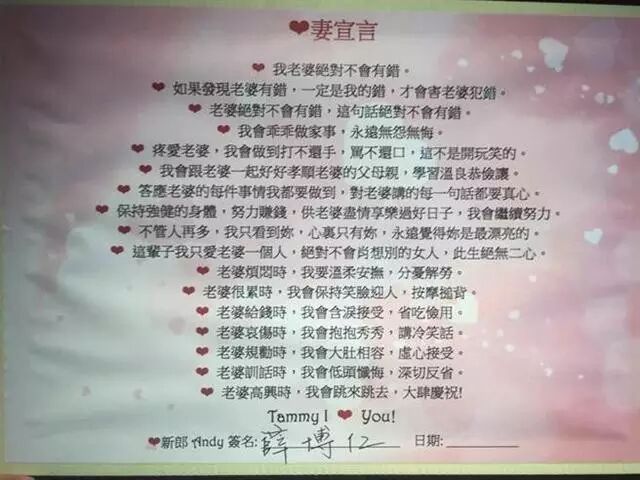 ❤妻宣言
❤ 我老婆絕對不會有錯。
❤ 如果發現老婆有錯,一定是我的錯,才會害老婆犯錯。
❤ 老婆絕對不會有錯,這句話絕對不會有錯。
❤ 我會乖乖做家事,永遠無怨無悔。
❤ 疼愛老婆,我會做到打不還手,罵不還口,這不是開玩笑的。
❤ 我會跟老婆一起好好孝順老婆的父母親,學習溫良恭儉讓。
❤ 答應老婆的每件事情我都要做到,對老婆講的每一句話都要真心。
❤ 保持強健的身體,努力賺錢,供老婆盡情享樂過好日子,我會繼續努力。
❤ 不管人再多,我只看到妳,心裏只有妳,永遠覺得妳是最漂亮的。
❤ 這輩子我只愛老婆一個人,絕對不會肖想別的女人,此生絕無二心。
❤ 老婆煩悶時,我要溫柔安撫,分憂解勞。
❤ 老婆很累時,我會保持笑臉迎人,按摩搥背。
❤ 老婆給錢時,我會含淚接受,省吃儉用。
❤ 老婆哀傷時,我會抱抱秀秀,講冷笑話。
❤ 老婆規勸時,我會大肚相容,虛心接受。
❤ 老婆訓話時,我會低頭懺悔,深切反省。
❤ 老婆高興時,我會跳來跳去,大肆慶祝!
Tammy I ❤ You!
❤新郎 Andy 簽名: 薛博仁 日期: